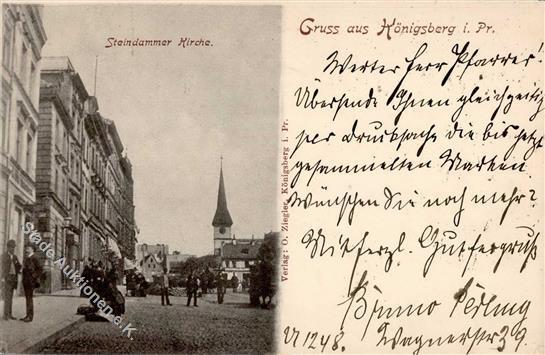 Steindammer Kirche.
Gruss aus Königsberg i. Pr.
Werter Herr Pfarrer!
Übersende Ihnen gleichzeitig
per Drucksache die bis jetzt
gesammelten Marken
Wünschen Sie noch mehr?
Mit herzl. Gutfergruß
Bruno
1248. Wagnerstr 39
Verlag: O. Ziegler, Königsberg i. Pr.
Stade-Auktionen.de